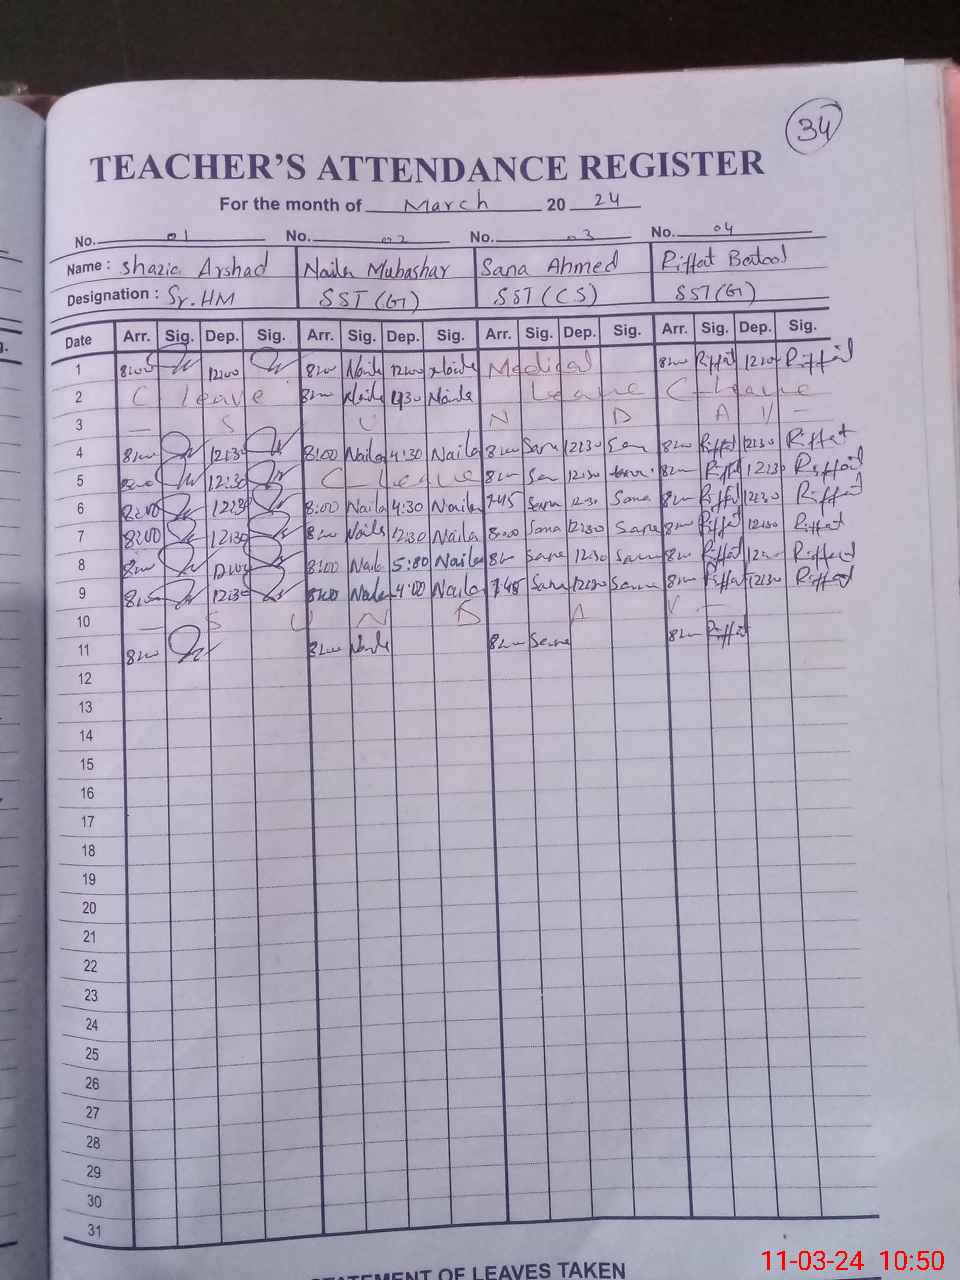 34
TEACHER'S ATTENDANCE REGISTER
For the month of March 20 24
No. 01 No. 02 No. 03 No. 04
Name : Shazia Arshad Naila Mubashar Sana Ahmed Riffat Batool
Designation : Sr. HM SST (G) SST (CS) SST (G)
Date Arr. Sig. Dep. Sig. Arr. Sig. Dep. Sig. Arr. Sig. Dep. Sig. Arr. Sig. Dep. Sig.
1 12:00 Naila 12:00 Naila Medical 8:00 Riffat 12:00 Riffat
2 C leave 8:00 Naila Naila Leave C leave
3 — S U N D A Y —
4 8:00 12:30 8:00 Naila 4:30 Naila 8:00 Sana 12:30 San 8:00 Riffat 12:30 Riffat
5 8:00 12:30 C leave 8:00 San 12:30 Sana 8:00 Riffat 12:30 Riffat
6 8:00 12:30 8:00 Naila 4:30 Naila 7:45 Sana 12:30 Sana 8:00 Riffat 12:30 Riffat
7 8:00 12:30 8:00 Naila 12:30 Naila 8:00 Sana 12:30 Sana 8:00 Riffat 12:30 Riffat
8 8:00 8:00 Naila Naila 8:00 Sana 12:30 Sana 8:00 Riffat Riffat
9 12:30 8:00 Naila 4:00 Naila 7:45 Sana 12:30 Sana 8:00 Riffat 12:30 Riffat
10 — S U N D A Y —
11 8:00 8:00 Naila 8:00 Sana 8:00 Riffat
12
13
14
15
16
17
18
19
20
21
22
23
24
25
26
27
28
29
30
31
STATEMENT OF LEAVES TAKEN
11-03-24 10:50